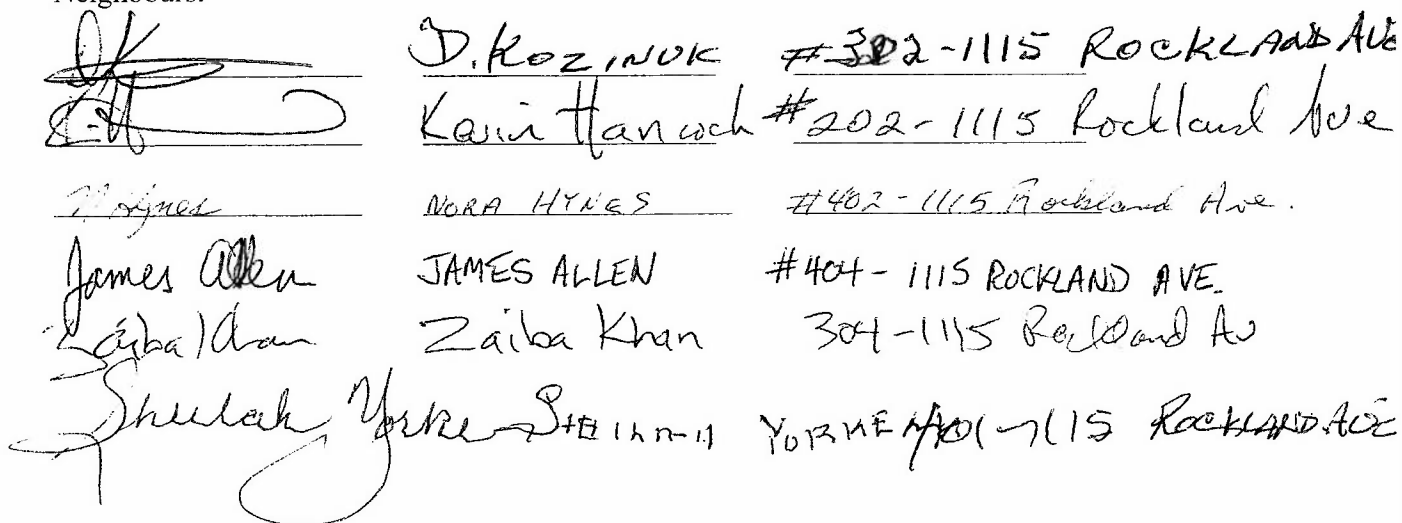 Neighbours:
D. KOZINUK #302-1115 ROCKLAND AVE
Kevin Hancock #202-1115 Rockland Ave
N Hynes NORA HYNES #402-1115 Rockland Ave.
James Allen JAMES ALLEN #404-1115 ROCKLAND AVE.
Zaiba Khan Zaiba Khan 304-1115 Rockland Av
Sheelah Yorke 1115 ROCKLAND AVE